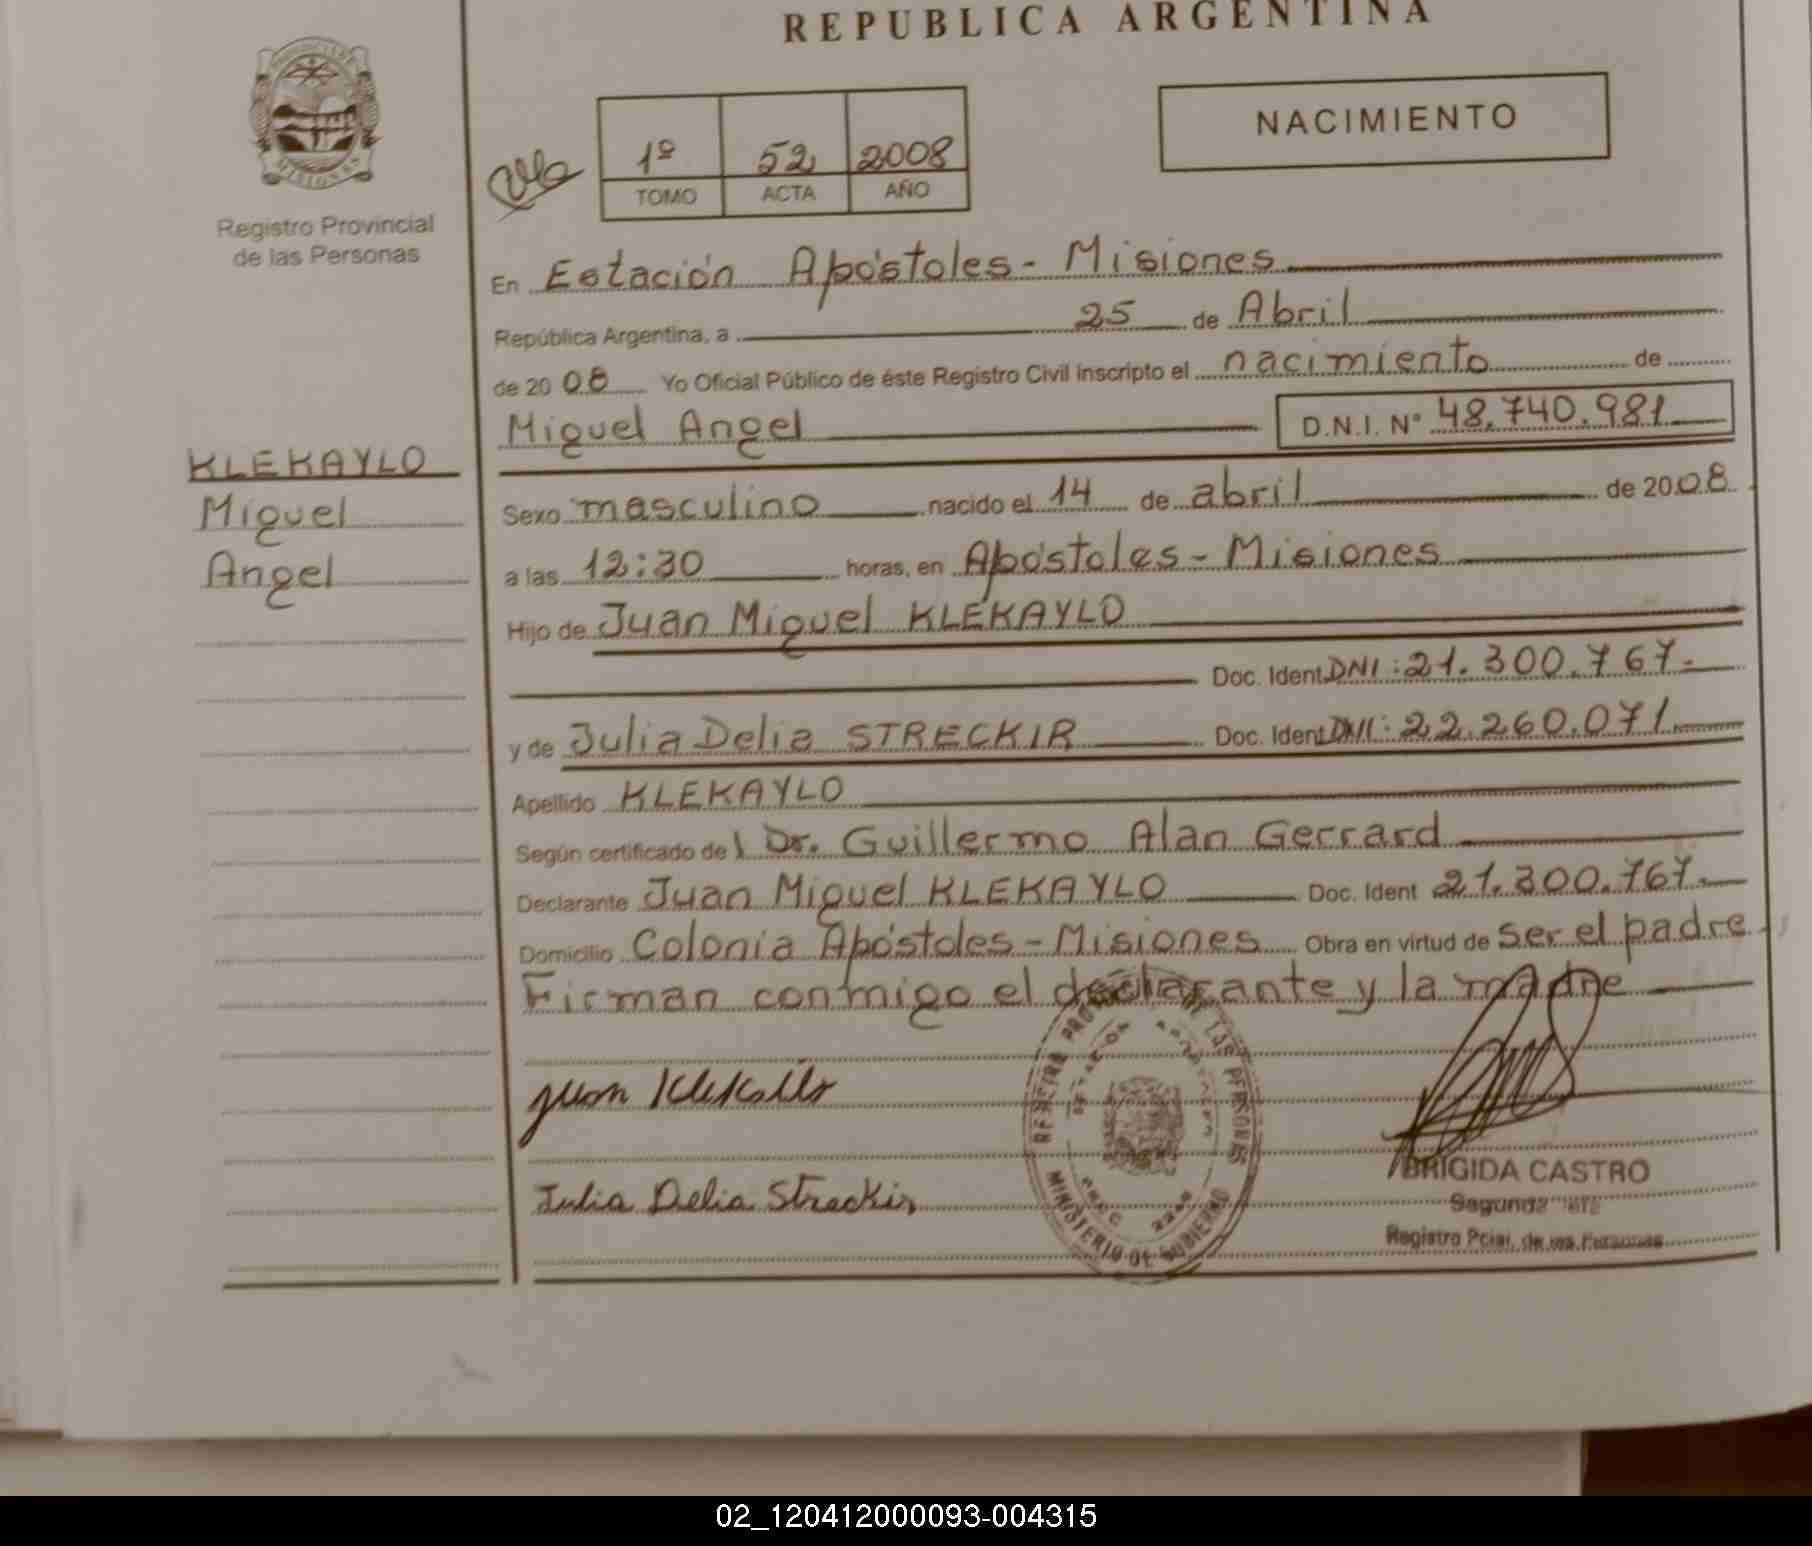 REPUBLICA ARGENTINA
MISIONES
Registro Provincial
de las Personas
NACIMIENTO
1º 52 2008
TOMO ACTA AÑO
En Estación Apóstoles - Misiones
República Argentina, a 25 de Abril
de 2008 Yo Oficial Público de éste Registro Civil inscripto el nacimiento de
Miguel Angel D.N.I. Nº 48.740.981
KLEKAYLO
Miguel
Angel
Sexo masculino nacido el 14 de abril de 2008
a las 12:30 horas, en Apóstoles - Misiones
Hijo de Juan Miguel KLEKAYLO
Doc. Ident DNI: 21.300.767.
y de Julia Delia STRECKIR Doc. Ident DNI: 22.260.071.
Apellido KLEKAYLO
Según certificado del Dr. Guillermo Alan Gerrard
Declarante Juan Miguel KLEKAYLO Doc. Ident 21.300.767.
Domicilio Colonia Apóstoles - Misiones Obra en virtud de ser el padre
Firman conmigo el declarante y la madre
Juan Klekallo
Julia Delia Streckir
LAS PERSONAS
MINISTERIO DE GOBIERNO
BRIGIDA CASTRO
Registro Pcial. de las Personas
02_120412000093-004315